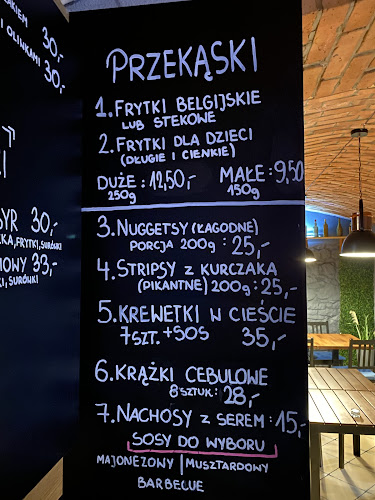 AKIEM 30,-
I OLINKAMI
30,-
I
SYR 30,-
KA, FRYTKI, SURÓWKI
MOWY 33,-
KI, SURÓWKI
PRZEKĄSKI
1. FRYTKI BELGIJSKIE
LUB STEKOWE
2. FRYTKI DLA DZIECI
(DŁUGIE I CIENKIE)
DUŻE: 12,50,- MAŁE: 9,50
250g 150g
3. NUGGETSY (ŁAGODNE)
PORCJA 200g: 25,-
4. STRIPSY Z KURCZAKA
(PIKANTNE) 200g: 25,-
5. KREWETKI W CIEŚCIE
7SZT. + SOS 35,-
6. KRĄŻKI CEBULOWE
8 SZTUK: 28,-
7. NACHOSY Z SEREM: 15,-
SOSY DO WYBORU
MAJONEZOWY | MUSZTARDOWY
BARBECUE